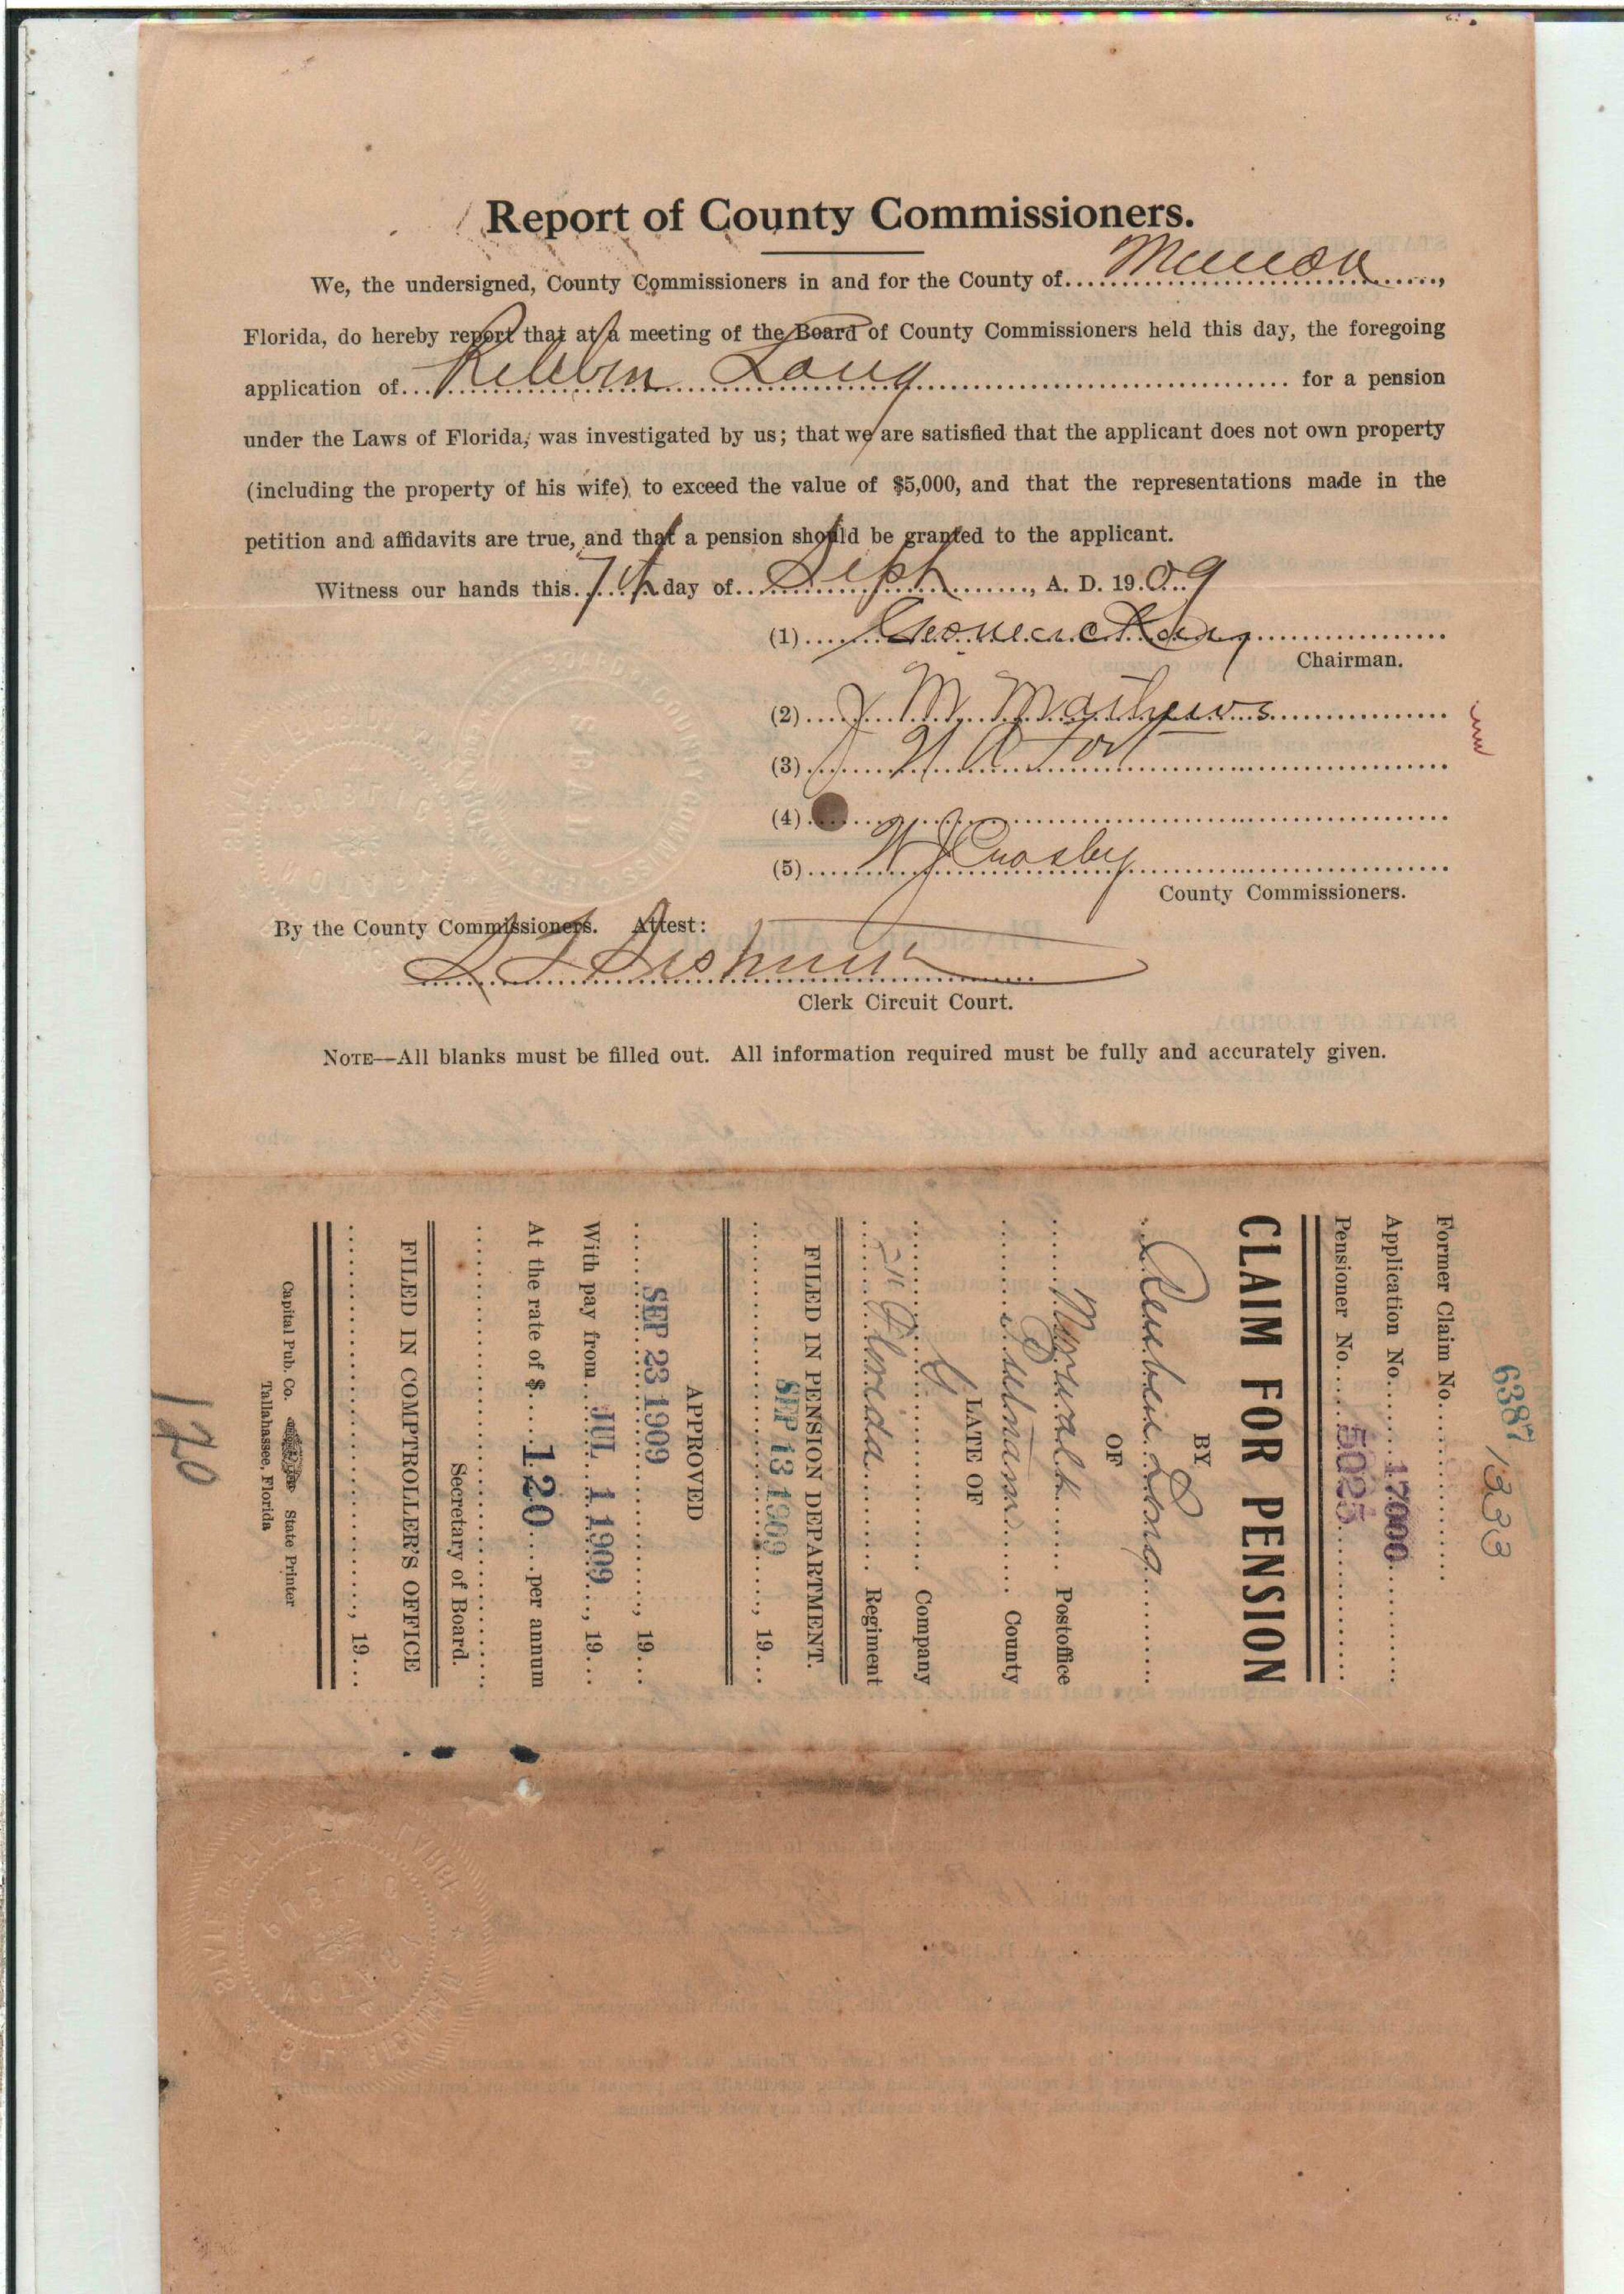 Report of County Commissioners.
We, the undersigned, County Commissioners in and for the County of Marion,
Florida, do hereby report that at a meeting of the Board of County Commissioners held this day, the foregoing
application of Reuben Long for a pension
under the Laws of Florida, was investigated by us; that we are satisfied that the applicant does not own property
(including the property of his wife) to exceed the value of $5,000, and that the representations made in the
petition and affidavits are true, and that a pension should be granted to the applicant.
Witness our hands this 7th day of Sept, A. D. 1909
(1)
Chairman.
(2) J M Mathews
(3)
(4)
(5) W J Crosby
County Commissioners.
By the County Commissioners. Attest:
Clerk Circuit Court.
NOTE—All blanks must be filled out. All information required must be fully and accurately given.
6387 1333
Former Claim No.
Application No. 17000
Pensioner No. 5025
CLAIM FOR PENSION
BY
Reuben Long
OF
Postoffice
Putnam County
LATE OF
G Company
Florida Regiment
FILED IN PENSION DEPARTMENT.
SEP 13 1909, 19
APPROVED
SEP 23 1909, 19
With pay from JUL 1 1909, 19
At the rate of $ 120 per annum
Secretary of Board.
FILED IN COMPTROLLER'S OFFICE
, 19
Capital Pub. Co. State Printer
Tallahassee, Florida
120